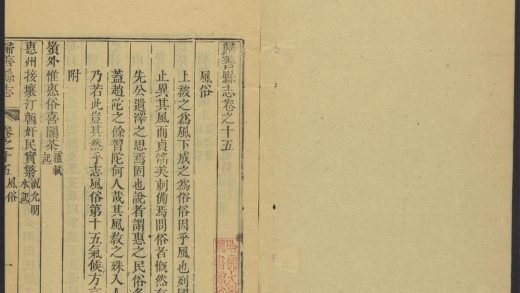 歸善縣志卷之十五
風俗
上敎之爲風下成之爲俗俗因乎風也列國
止異其風而貞淫美刺備焉問俗者慨然有
先公遺澤之思焉固也說者謂惠之民俗多
蓋趙陀之餘習陀何人哉其風敎之殊入人
乃若此豈其然乎志風俗第十五氣候方言
附
嶺外惟惠俗喜團茶蘇軾記
惠州接壤汀贛奸民實繁祝允明
歸善縣志
卷之十五 風俗
一